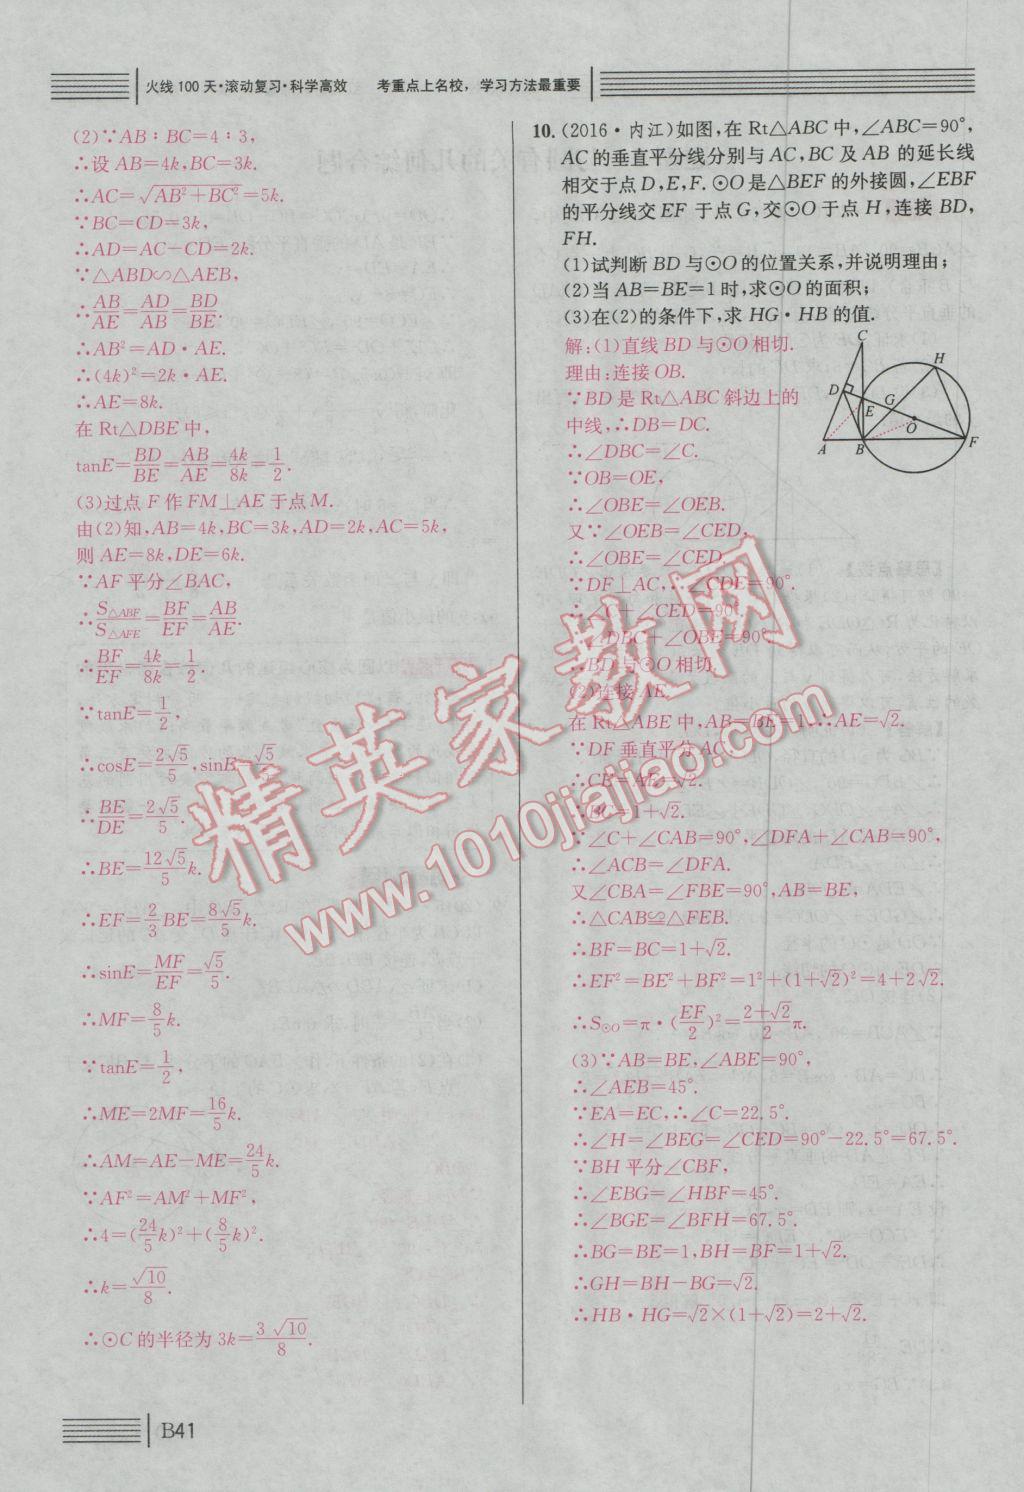 火线100天·滚动复习·科学高效 考重点上名校，学习方法最重要
(2)∵AB∶BC=4∶3,
∴设AB=4k,BC=3k.
∴AC=√(AB²+BC²)=5k.
∵BC=CD=3k,
∴AD=AC-CD=2k.
∵△ABD∽△AEB,
∴AB/AE=AD/AB=BD/BE.
∴AB²=AD·AE.
∴(4k)²=2k·AE.
∴AE=8k.
在Rt△DBE中,
tanE=BD/BE=AB/AE=4k/8k=1/2.
(3)过点F作FM⊥AE于点M.
由(2)知,AB=4k,BC=3k,AD=2k,AC=5k,
则AE=8k,DE=6k.
∵AF平分∠BAC,
∴S△ABF/S△AFE=BF/EF=AB/AE.
∴BF/EF=4k/8k=1/2.
∵tanE=1/2,
∴cosE=2√5/5,sinE=√5/5.
∴BE/DE=2√5/5.
∴BE=12√5/5k.
∴EF=2/3BE=8√5/5k.
∴sinE=MF/EF=√5/5.
∴MF=8/5k.
∵tanE=1/2,
∴ME=2MF=16/5k.
∴AM=AE-ME=24/5k.
∵AF²=AM²+MF²,
∴4=(24/5k)²+(8/5k)².
∴k=√10/8.
∴⊙C的半径为3k=3√10/8.
10.(2016·内江)如图,在Rt△ABC中,∠ABC=90°,
AC的垂直平分线分别与AC,BC及AB的延长线
相交于点D,E,F.⊙O是△BEF的外接圆,∠EBF
的平分线交EF于点G,交⊙O于点H,连接BD,
FH.
(1)试判断BD与⊙O的位置关系,并说明理由;
(2)当AB=BE=1时,求⊙O的面积;
(3)在(2)的条件下,求HG·HB的值.
解:(1)直线BD与⊙O相切.
理由:连接OB.
∵BD是Rt△ABC斜边上的
中线,∴DB=DC.
∴∠DBC=∠C.
∵OB=OE,
∴∠OBE=∠OEB.
又∵∠OEB=∠CED,
∴∠OBE=∠CED.
∵DF⊥AC,∴∠CDE=90°.
∴∠C+∠CED=90°.
∴∠DBC+∠OBE=90°.
∴BD与⊙O相切.
(2)连接AE.
在Rt△ABE中,AB=BE=1,∴AE=√2.
∵DF垂直平分AC,
∴CE=AE=√2.
∴BC=1+√2.
∵∠C+∠CAB=90°,∠DFA+∠CAB=90°,
∴∠ACB=∠DFA.
又∠CBA=∠FBE=90°,AB=BE,
∴△CAB≌△FEB.
∴BF=BC=1+√2.
∴EF²=BE²+BF²=1²+(1+√2)²=4+2√2.
∴S⊙O=π·(EF/2)²=(2+√2)/2π.
(3)∵AB=BE,∠ABE=90°,
∴∠AEB=45°.
∵EA=EC,∴∠C=22.5°.
∴∠H=∠BEG=∠CED=90°-22.5°=67.5°.
∵BH平分∠CBF,
∴∠EBG=∠HBF=45°.
∴∠BGE=∠BFH=67.5°.
∴BG=BE=1,BH=BF=1+√2.
∴GH=BH-BG=√2.
∴HB·HG=√2×(1+√2)=2+√2.
C
H
D
G
E
O
A
B
F
精英家教网
www.1010jiajiao.com
B41